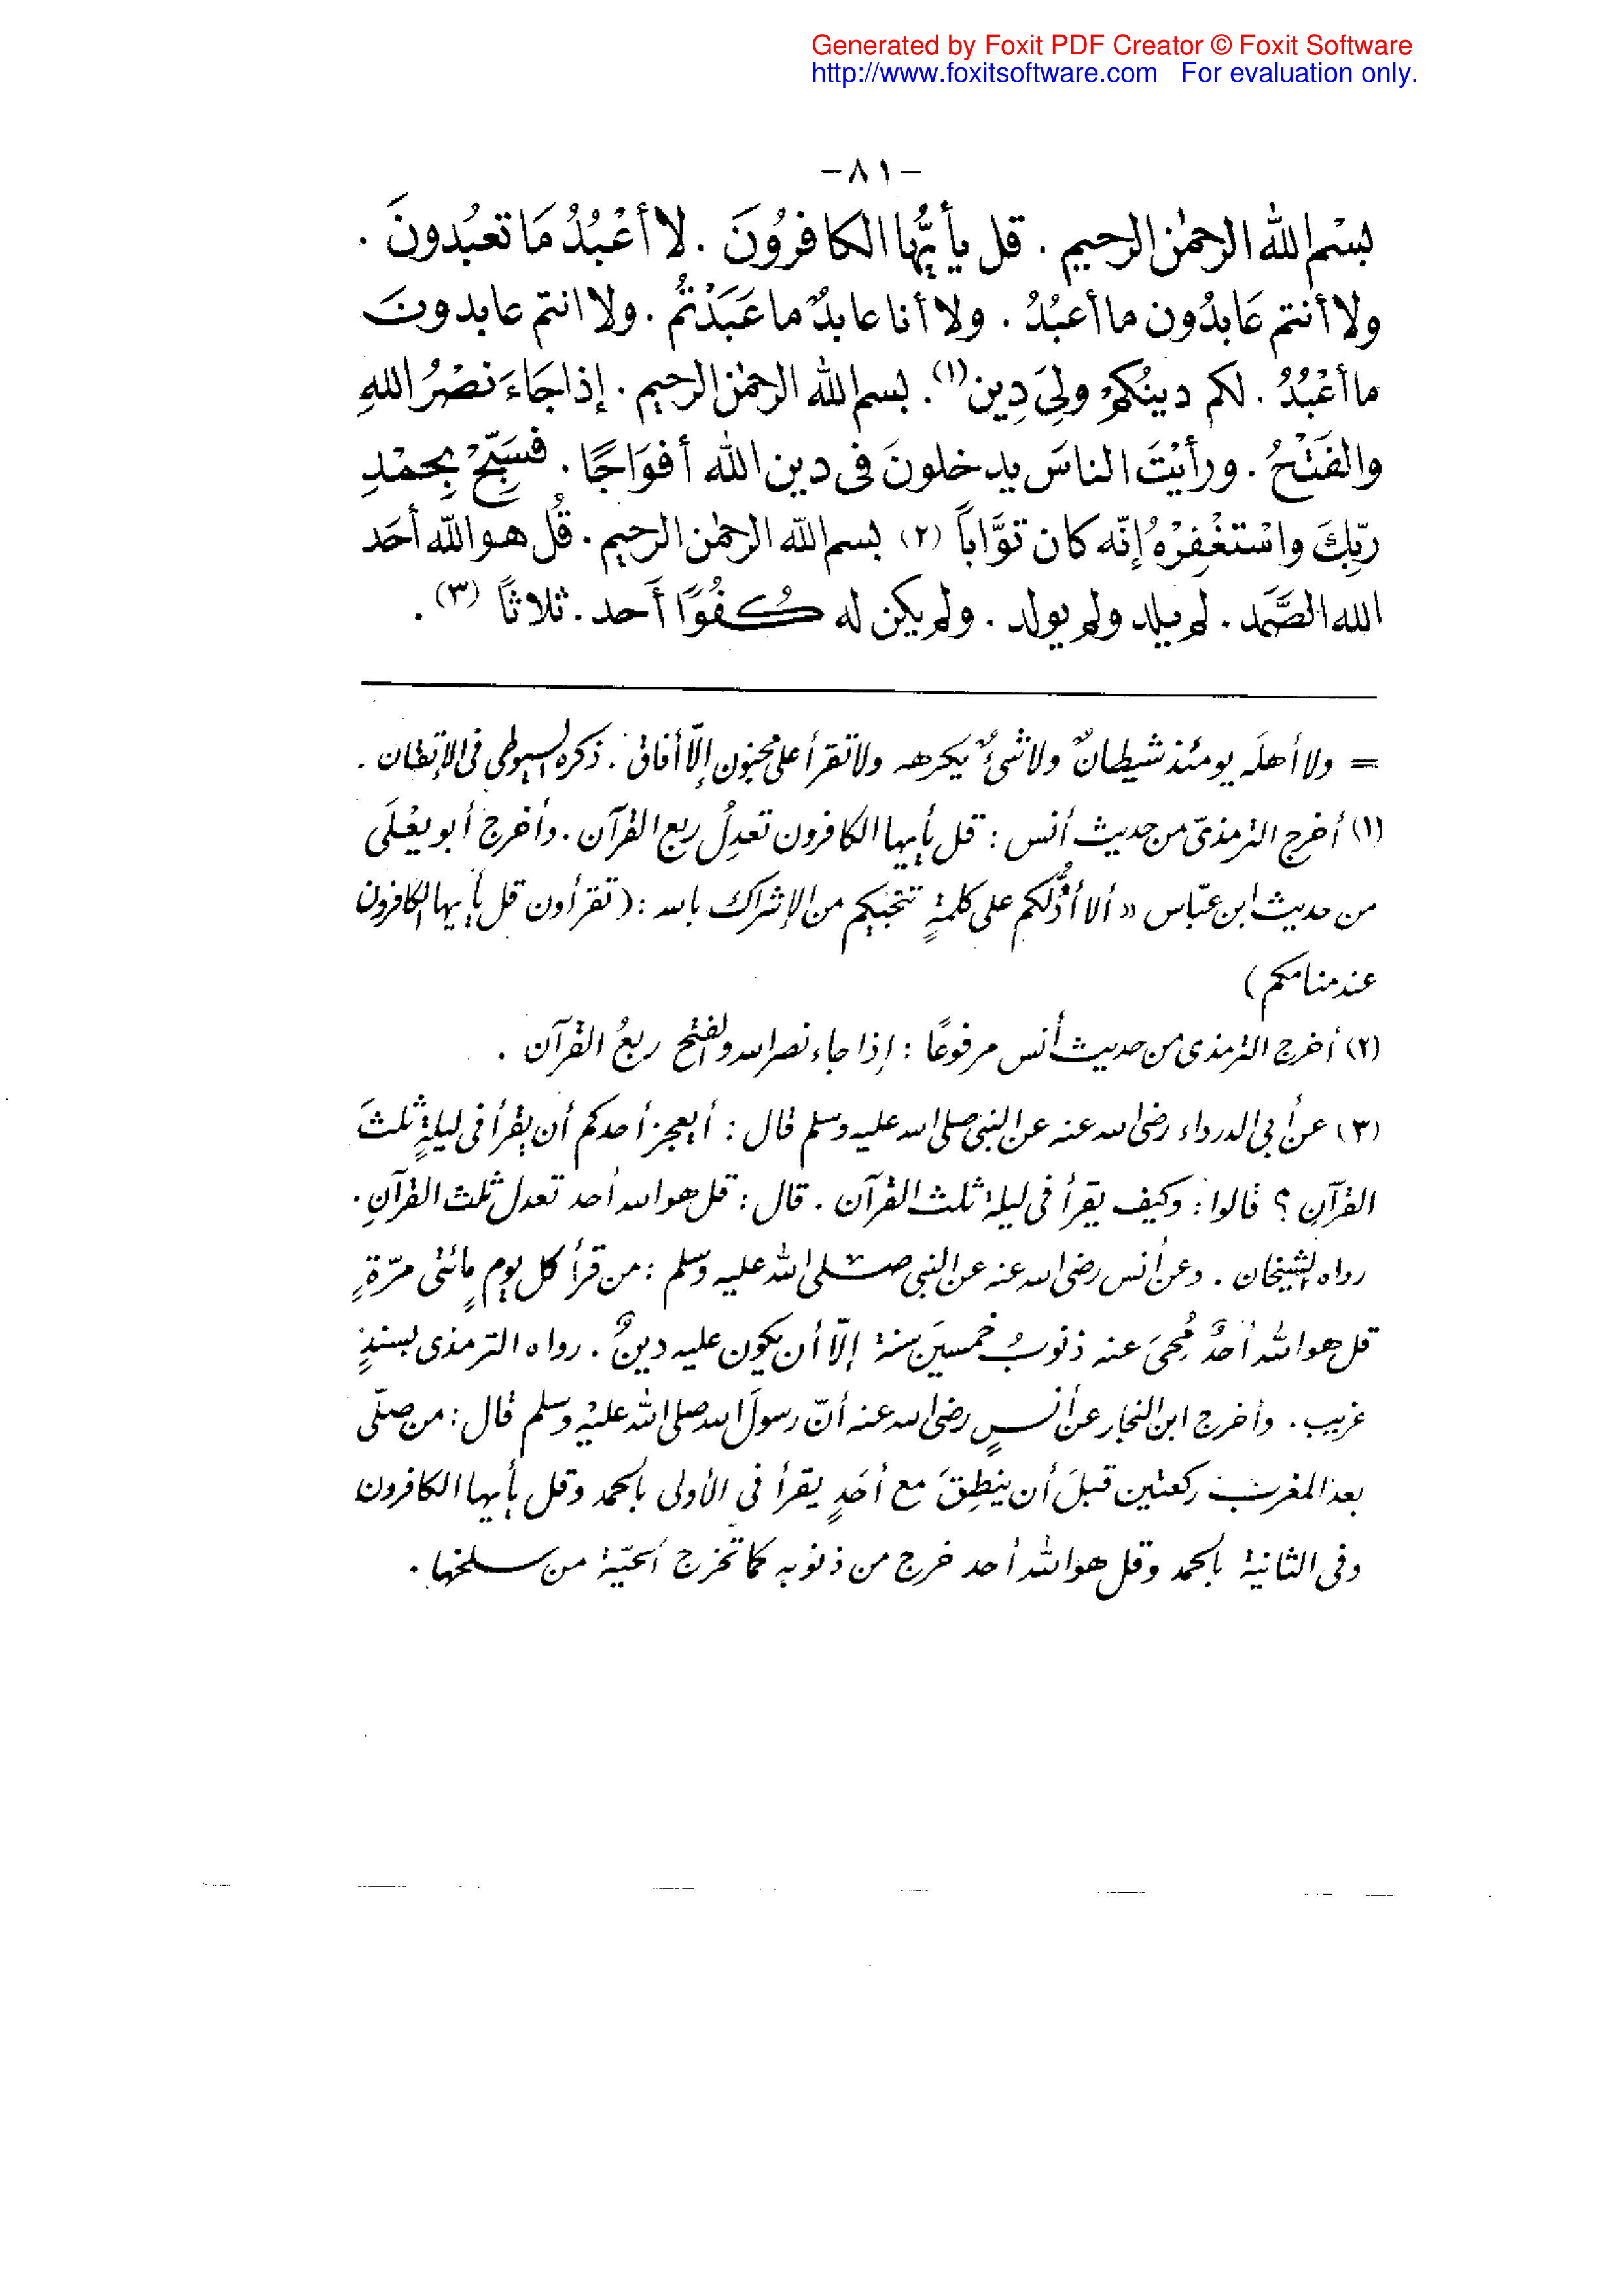 Generated by Foxit PDF Creator © Foxit Software
http://www.foxitsoftware.com For evaluation only.
-٨١-
بسْم الله الرحمٰن الرحيم . قل يأيُّها الكافرُونَ . لا أعْبُدُ مَا تعبُدونَ .
ولا أنتم عَابدُون ما أعبُدُ . ولا أنا عابدٌ ما عَبَدْتُمْ . ولا انتم عابدونَ
ما أعْبُدُ . لكم دينُكُمْ ولِىَ دِين (١) . بسم الله الرحمٰن الرحيم . إذا جَاءَ نصْرُ اللهِ
والفَتْحُ . ورأيْتَ الناسَ يدخلونَ فى دين الله أفوَاجًا . فسَبِّحْ بِحمْدِ
ربِّكَ واسْتغْفِرْهُ إنّه كان توَّاباً (٢) بسم الله الرحمٰن الرحيم . قُل هو الله أحَد
الله الصَّمَد . لم يلد ولم يولد . ولم يكن له كُفُوًا أَحد . ثلاثاً (٣) .
= ولا أهلَه يومئذ شيطانٌ ولا شىءٌ يكرهه ولا تقرأ على مجنون إلّا أفاق . ذكره السيوطى فى الإتقان .
(١) أخرج الترمذىّ من حديث أنس : قل يأيها الكافرون تعدِلُ ربع القرآن . وأخرج أبو يعْلَى
من حديث ابن عبّاس « ألا أدُلُّكم على كلمةٍ تنجيكم من الإشراك بالله : (تقرأون قل يأيها الكافرون
عند منامكم)
(٢) أخرج الترمذى من حديث أنس مرفوعًا : إذا جاء نصر الله والفتح ربعُ القرآن .
(٣) عن أبى الدرداء رضى الله عنه عن النبى صلى الله عليه وسلم قال : أيعجز أحدكم أن يقرأ فى ليلةٍ ثلثَ
القرآنِ ؟ قالوا : وكيف يقرأ فى ليلة ثلث القرآن . قال : قل هو الله أحد تعدل ثلث القرآنِ .
رواه الشيخان . وعن أنس رضى الله عنه عن النبى صلى الله عليه وسلم : من قرأ كل يومٍ مائتى مرّةٍ
قل هو الله أحدٌ مُحِىَ عنه ذنوبُ خمسينَ سنة إلّا أن يكون عليه دينٌ . رواه الترمذى بسندٍ
غريب . وأخرج ابن النجار عن أنسٍ رضى الله عنه أنّ رسولَ الله صلى الله عليْه وسلم قال : من صلّى
بعد المغرب ركعتين قبلَ أن ينطِقَ مع أحَدٍ يقرأ فى الأولى بالحمد وقل يأيها الكافرون
وفى الثانية بالحمد وقل هو الله أحد خرج من ذنوبه كما تخرج الحيّة من سلخها .